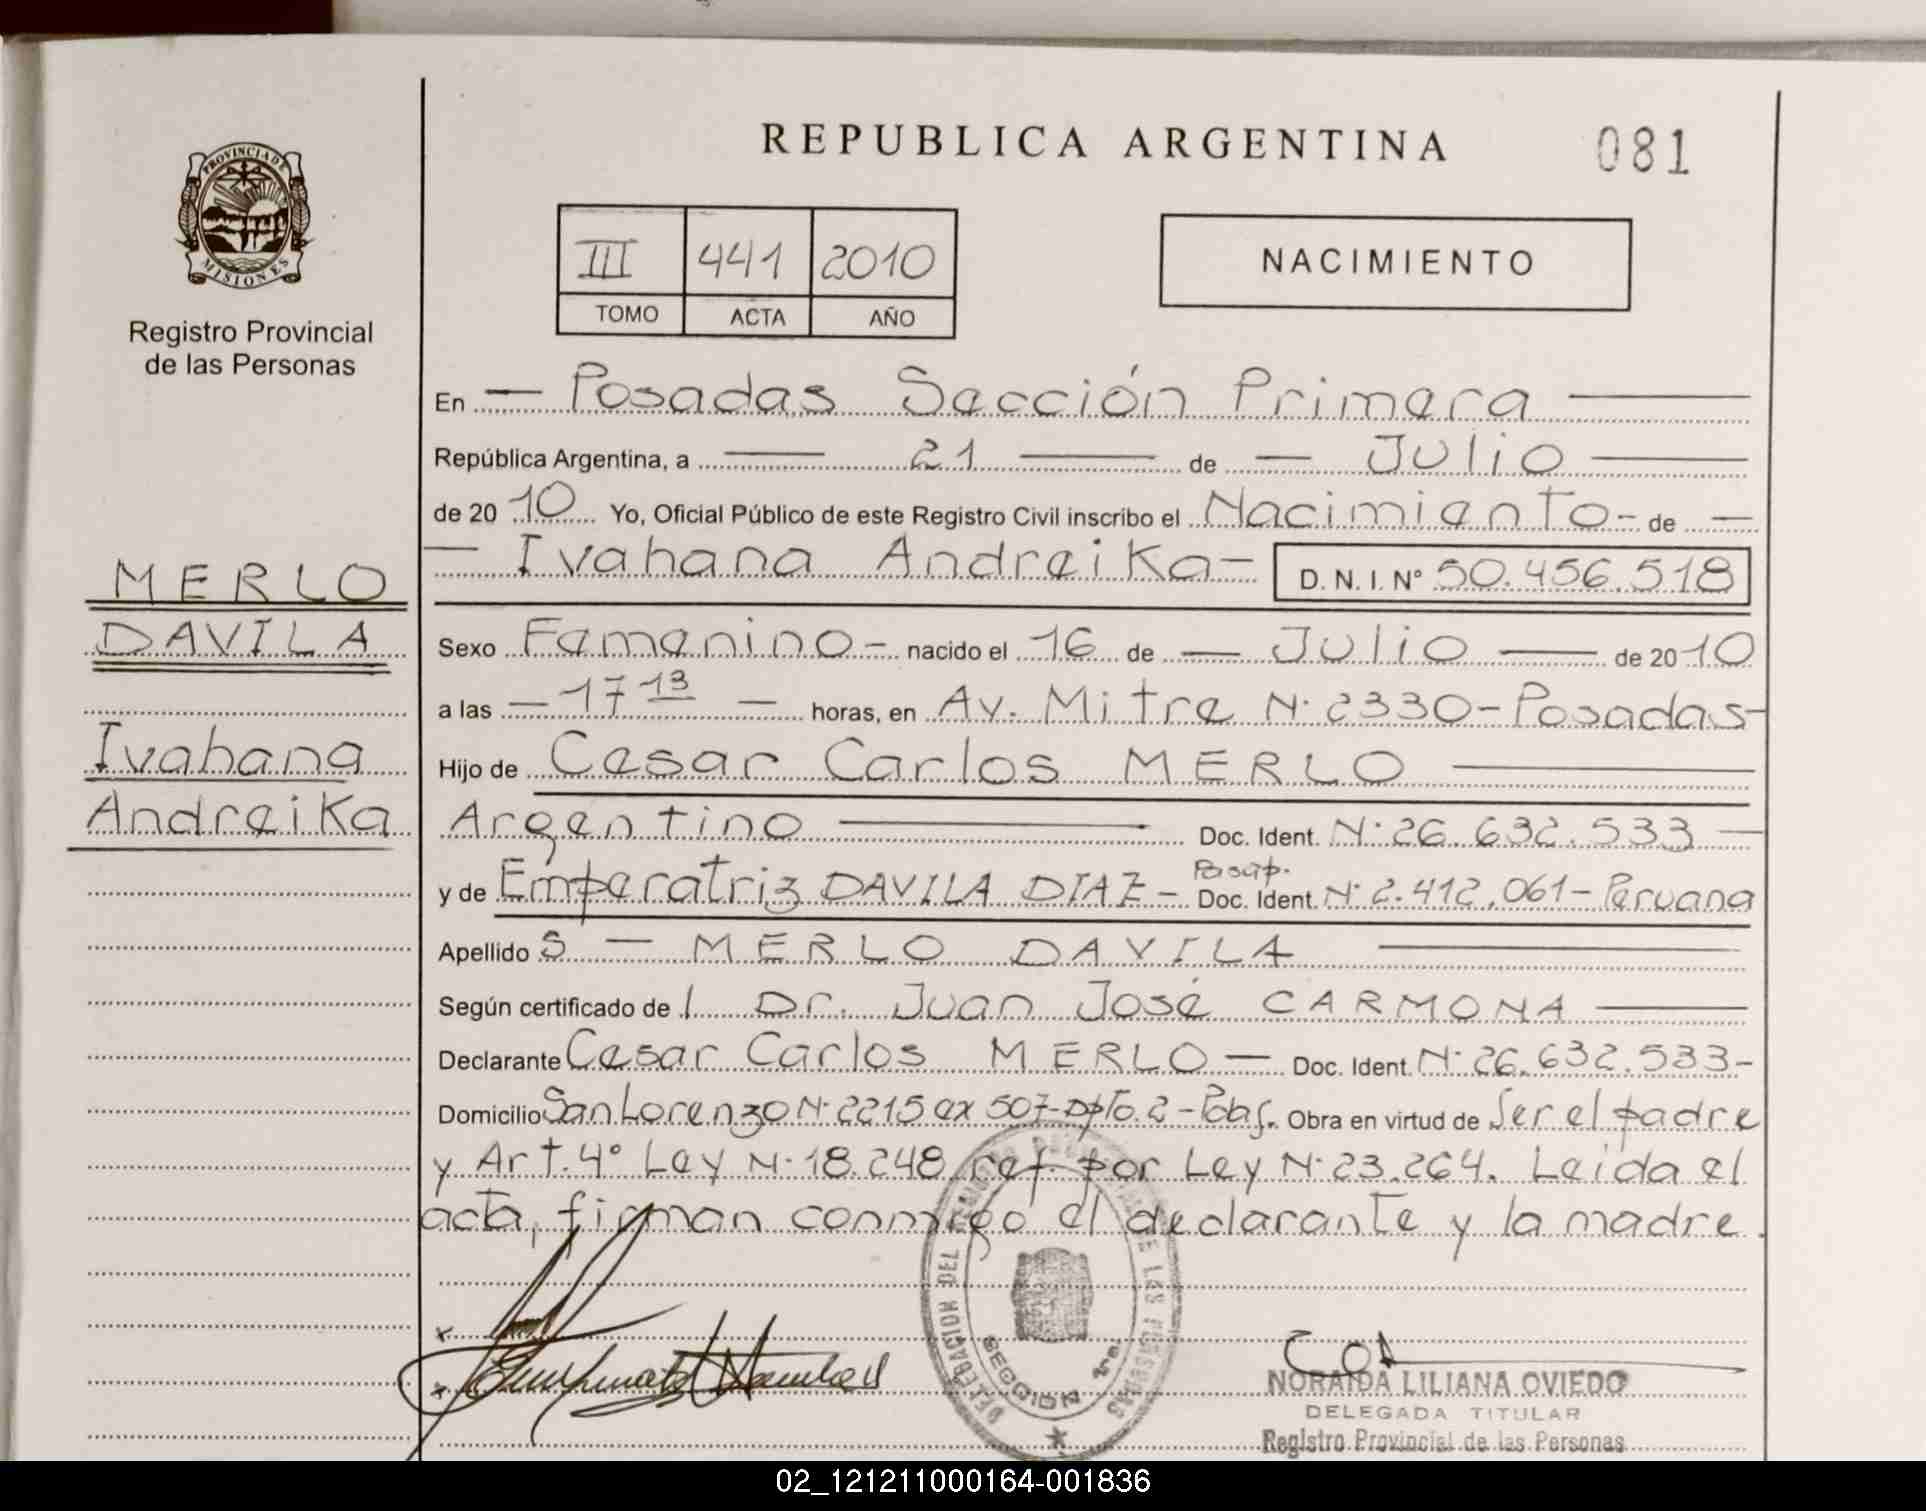 REPUBLICA ARGENTINA
081
PROVINCIA DE
MISIONES
Registro Provincial
de las Personas
III 441 2010
TOMO ACTA AÑO
NACIMIENTO
En — Posadas Sección Primera —
República Argentina, a — 21 — de — Julio —
de 20 10 Yo, Oficial Público de este Registro Civil inscribo el Nacimiento - de —
— Ivahana Andreika - D. N. I. Nº 50.456.518
MERLO
DAVILA
Ivahana
Andreika
Sexo Femenino - nacido el 16 de — Julio — de 20 10
a las — 17 13 — horas, en Av. Mitre N· 2330 - Posadas -
Hijo de Cesar Carlos MERLO —
Argentino — Doc. Ident. N· 26.632.533 —
Pasap.
y de Emperatriz DAVILA DIAZ - Doc. Ident. N· 2.412.061 - Peruana
Apellido s — MERLO DAVILA —
Según certificado de l Dr. Juan José CARMONA —
Declarante Cesar Carlos MERLO — Doc. Ident. N· 26.632.533 -
Domicilio San Lorenzo N· 2215 ex 507 - Dpto. 2 - Pdas. Obra en virtud de Ser el padre
y Art. 4° Ley N· 18.248 ref. por Ley N· 23.264. Leida el
acta, firman conmigo el declarante y la madre.
DELEGACION DEL REGISTRO PROVINCIAL DE LAS PERSONAS
SECCION 1ra.
NORAIDA LILIANA OVIEDO
DELEGADA TITULAR
Registro Provincial de las Personas
02_121211000164-001836